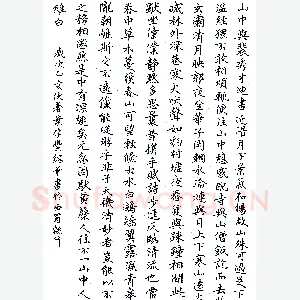 山中與裴秀才迪書 近臘月下景氣和暢故山殊可過足下方
温經猥不敢相煩輒便往山中憩感配寺與山僧飯訖而去北涉
玄灞清月映郭夜登華子岡輞水淪漣與月上下寒山遠火明
滅林外深巷寒犬吠聲如豹村墟夜舂復與疎鐘相間此時
獨坐僮僕靜默多思曩昔攜手賦詩步仄逕臨清流也當待
春中草木蔓發春山可望輕鯈出水白鷗矯翼露濕青皋麥
隴朝雊斯之不遠儻能從我游乎非子天機清妙者豈能以不急
之務相邀然是中有深趣矣無忽因馱黃檗人往不一山中人王
維白 歲次乙